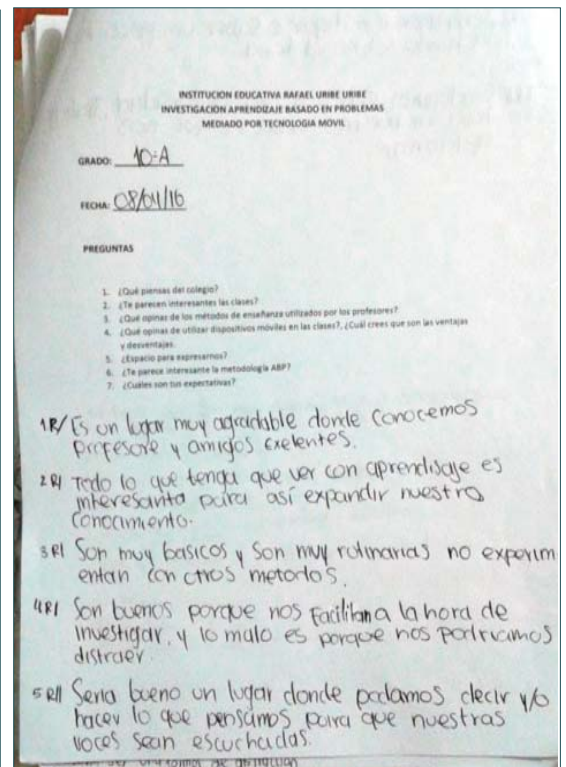 INSTITUCIÓN EDUCATIVA RAFAEL URIBE URIBE
INVESTIGACIÓN APRENDIZAJE BASADO EN PROBLEMAS
MEDIADO POR TECNOLOGIA MOVIL
GRADO: 10-A
FECHA: 08/04/16
PREGUNTAS
1. ¿Qué piensas del colegio?
2. ¿Te parecen interesantes las clases?
3. ¿Qué opinas de los métodos de enseñanza utilizados por los profesores?
4. ¿Qué opinas de utilizar dispositivos móviles en las clases?, ¿Cuál crees que son las ventajas
y desventajas.
5. ¿Espacio para expresarnos?
6. ¿Te parece interesante la metodología ABP?
7. ¿Cuáles son tus expectativas?
1R/ Es un lugar muy agradable donde conocemos
profesore y amigos exelentes.
2R/ Todo lo que tenga que ver con aprendisaje es
interesante para así expandir nuestro
conocimiento.
3R/ Son muy basicos y son muy rutinarias no experim
entan con otros metodos.
4R/ Son buenos porque nos facilitan a la hora de
investigar, y lo malo es porque nos podriamos
distraer.
5R// Seria bueno un lugar donde podamos decir y/o
hacer lo que pensamos para que nuestras
voces sean escuchadas.